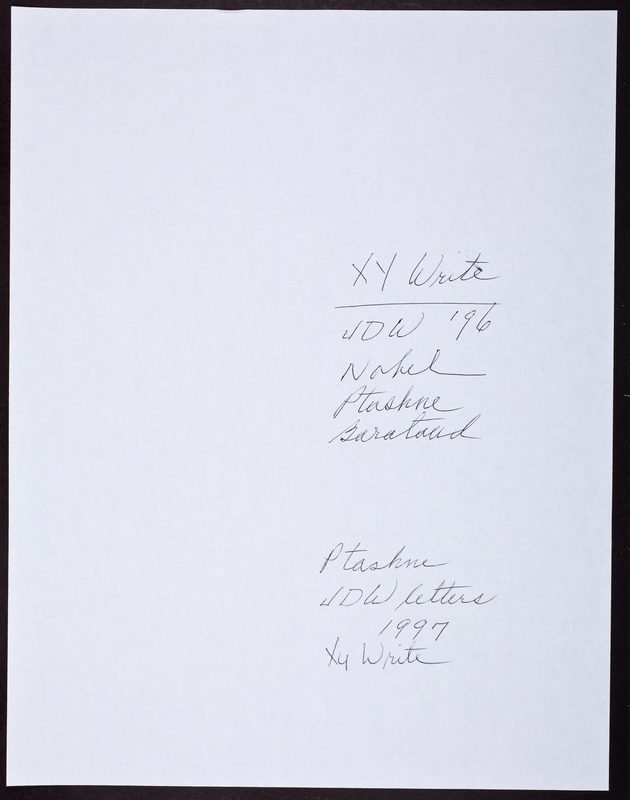 XY Write
JDW '96
Nobel
Ptashne
Ptashne
JDW letters
1997
Xy Write